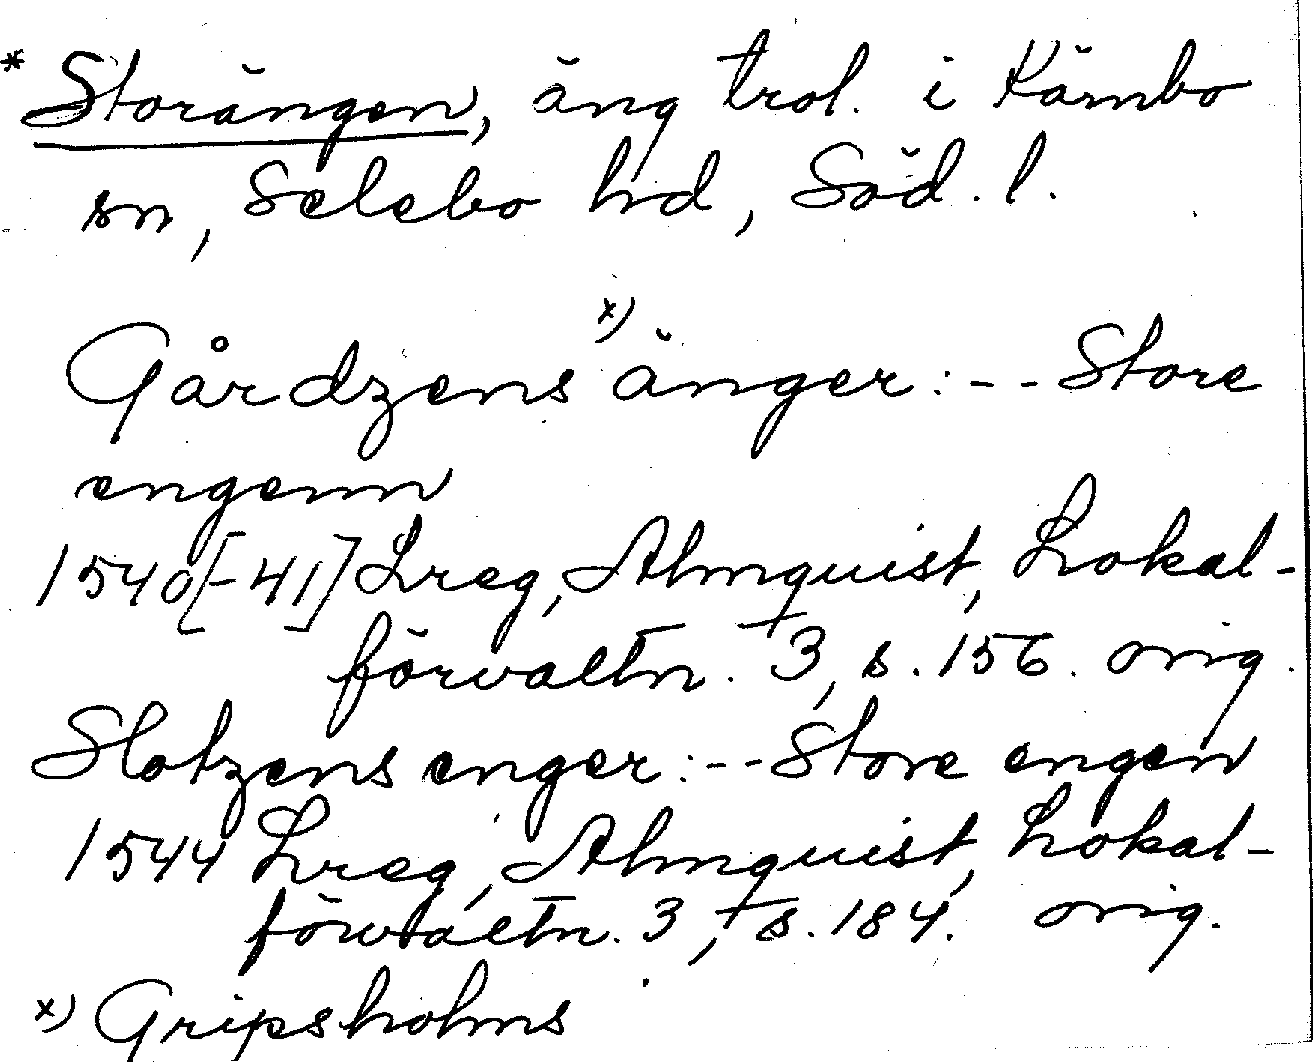 * Storängen, äng trol. i Kärnbo
sn, Selebo hd, Söd. l.
Gårdzens x) änger: -- Store
engenn
1540[-41] Lreg, Almquist, Lokal-
förvaltn. 3, s. 156. orig.
Slotzens enger: -- Store engen
1544 Lreg, Almquist, Lokal-
förvaltn. 3, s. 184. orig.
x) Gripsholms